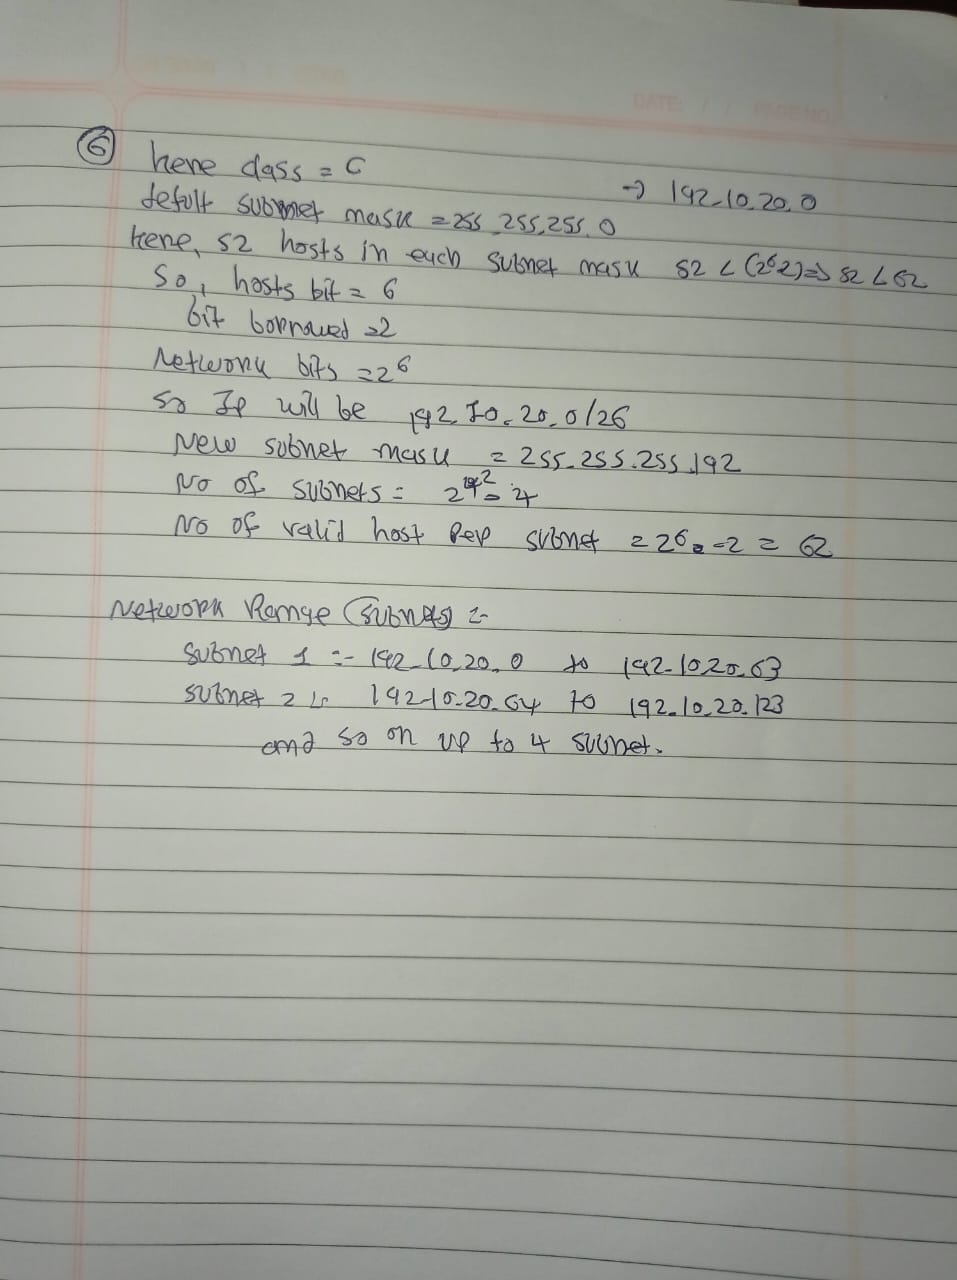 DATE: / / PAGE NO.
⑥ here class = C
→ 192.10.20.0
defult subnet mask = 255.255.255.0
here, 52 hosts in each subnet mask 52 < (2⁶-2) => 52 < 62
So, hosts bit = 6
bit borrowed = 2
Network bits = 26
so IP will be 192.10.20.0/26
New subnet mask = 255.255.255.192
No of subnets = 2² = 4
No of valid host per subnet = 2⁶ - 2 = 62
Network Range (subnets) :-
subnet 1 :- 192.10.20.0 to 192.10.20.63
subnet 2 :- 192.10.20.64 to 192.10.20.123
and so on up to 4 subnet.